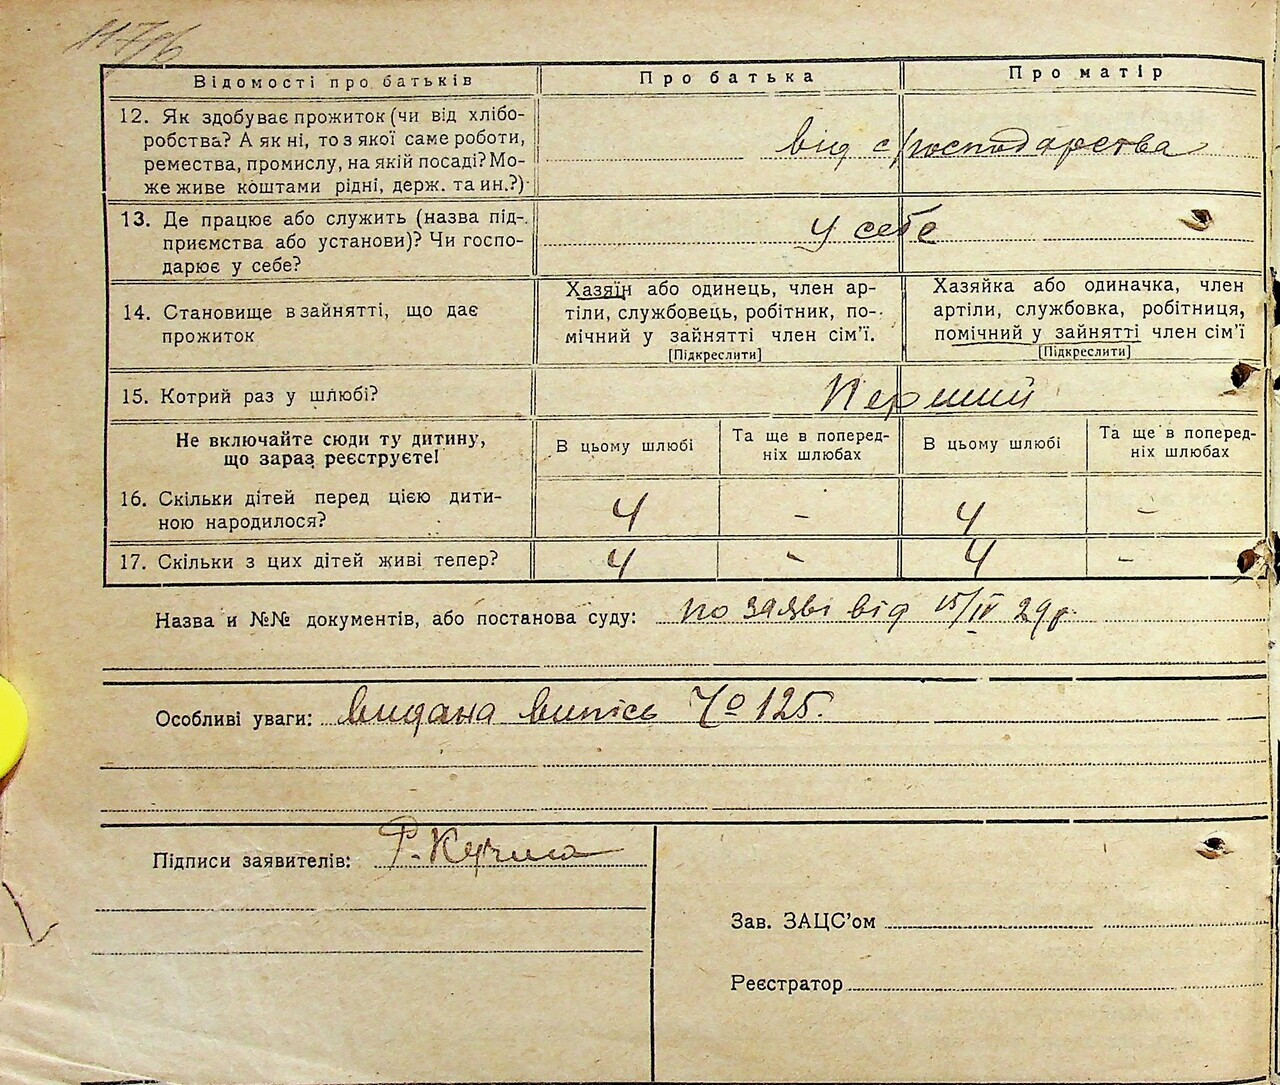 Відомості про батьків
Про батька
Про матір
12. Як здобуває прожиток (чи від хлібо-
робства? А як ні, то з якої саме роботи,
ремества, промислу, на якій посаді? Мо-
же живе коштами рідні, держ. та ин.?)
від с/господарства
13. Де працює або служить (назва під-
приємства або установи)? Чи госпо-
дарює у себе?
у себе
14. Становище в зайнятті, що дає
прожиток
Хазяїн або одинець, член ар-
тіли, службовець, робітник, по-
мічний у зайнятті член сім'ї.
[Підкреслити]
Хазяйка або одиначка, член
артіли, службовка, робітниця,
помічний у зайнятті член сім'ї
[Підкреслити]
15. Котрий раз у шлюбі?
Перший
Не включайте сюди ту дитину,
що зараз реєструєте!
В цьому шлюбі
Та ще в поперед-
ніх шлюбах
В цьому шлюбі
Та ще в поперед-
ніх шлюбах
16. Скільки дітей перед цією дити-
ною народилося?
4 - 4 -
17. Скільки з цих дітей живі тепер?
4 - 4 -
Назва и №№ документів, або постанова суду: по заяві від 15/IV 29р.
Особливі уваги: видана випісь № 125.
Підписи заявителів:
Зав. ЗАЦС'ом
Реєстратор